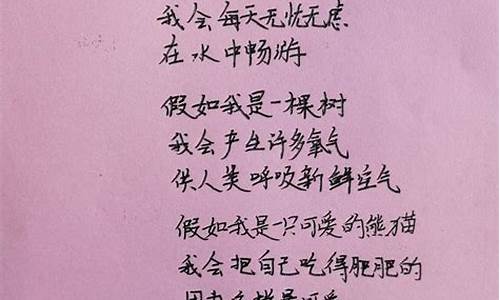 我会每天无忧无虑
在水中畅游
假如我是一棵树
我会产生许多氧气
供人类呼吸新鲜空气
假如我是一只可爱的熊猫
我会把自己吃得肥肥的